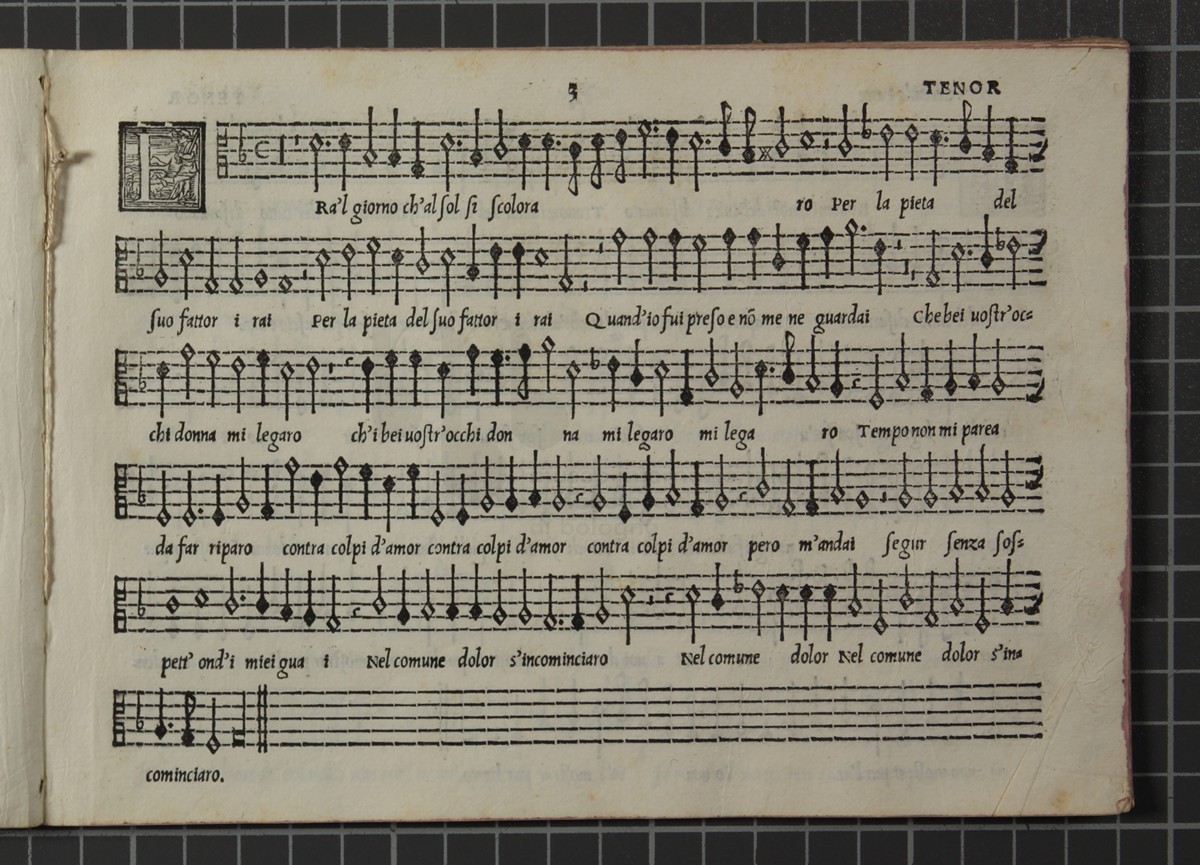 3
TENOR
ERa'l giorno ch'al sol si scolora ro Per la pieta del
suo fattor i rai Per la pieta del suo fattor i rai Quand'io fui preso e nõ me ne guardai Che bei uostr'oc=
chi donna mi legaro ch'i bei uostr'occhi don na mi legaro mi lega ro Tempo non mi parea
da far riparo contra colpi d'amor contra colpi d'amor contra colpi d'amor pero m'andai segur senza sos=
pett' ond'i miei gua i Nel comune dolor s'incominciaro Nel comune dolor Nel comune dolor s'in=
cominciaro.